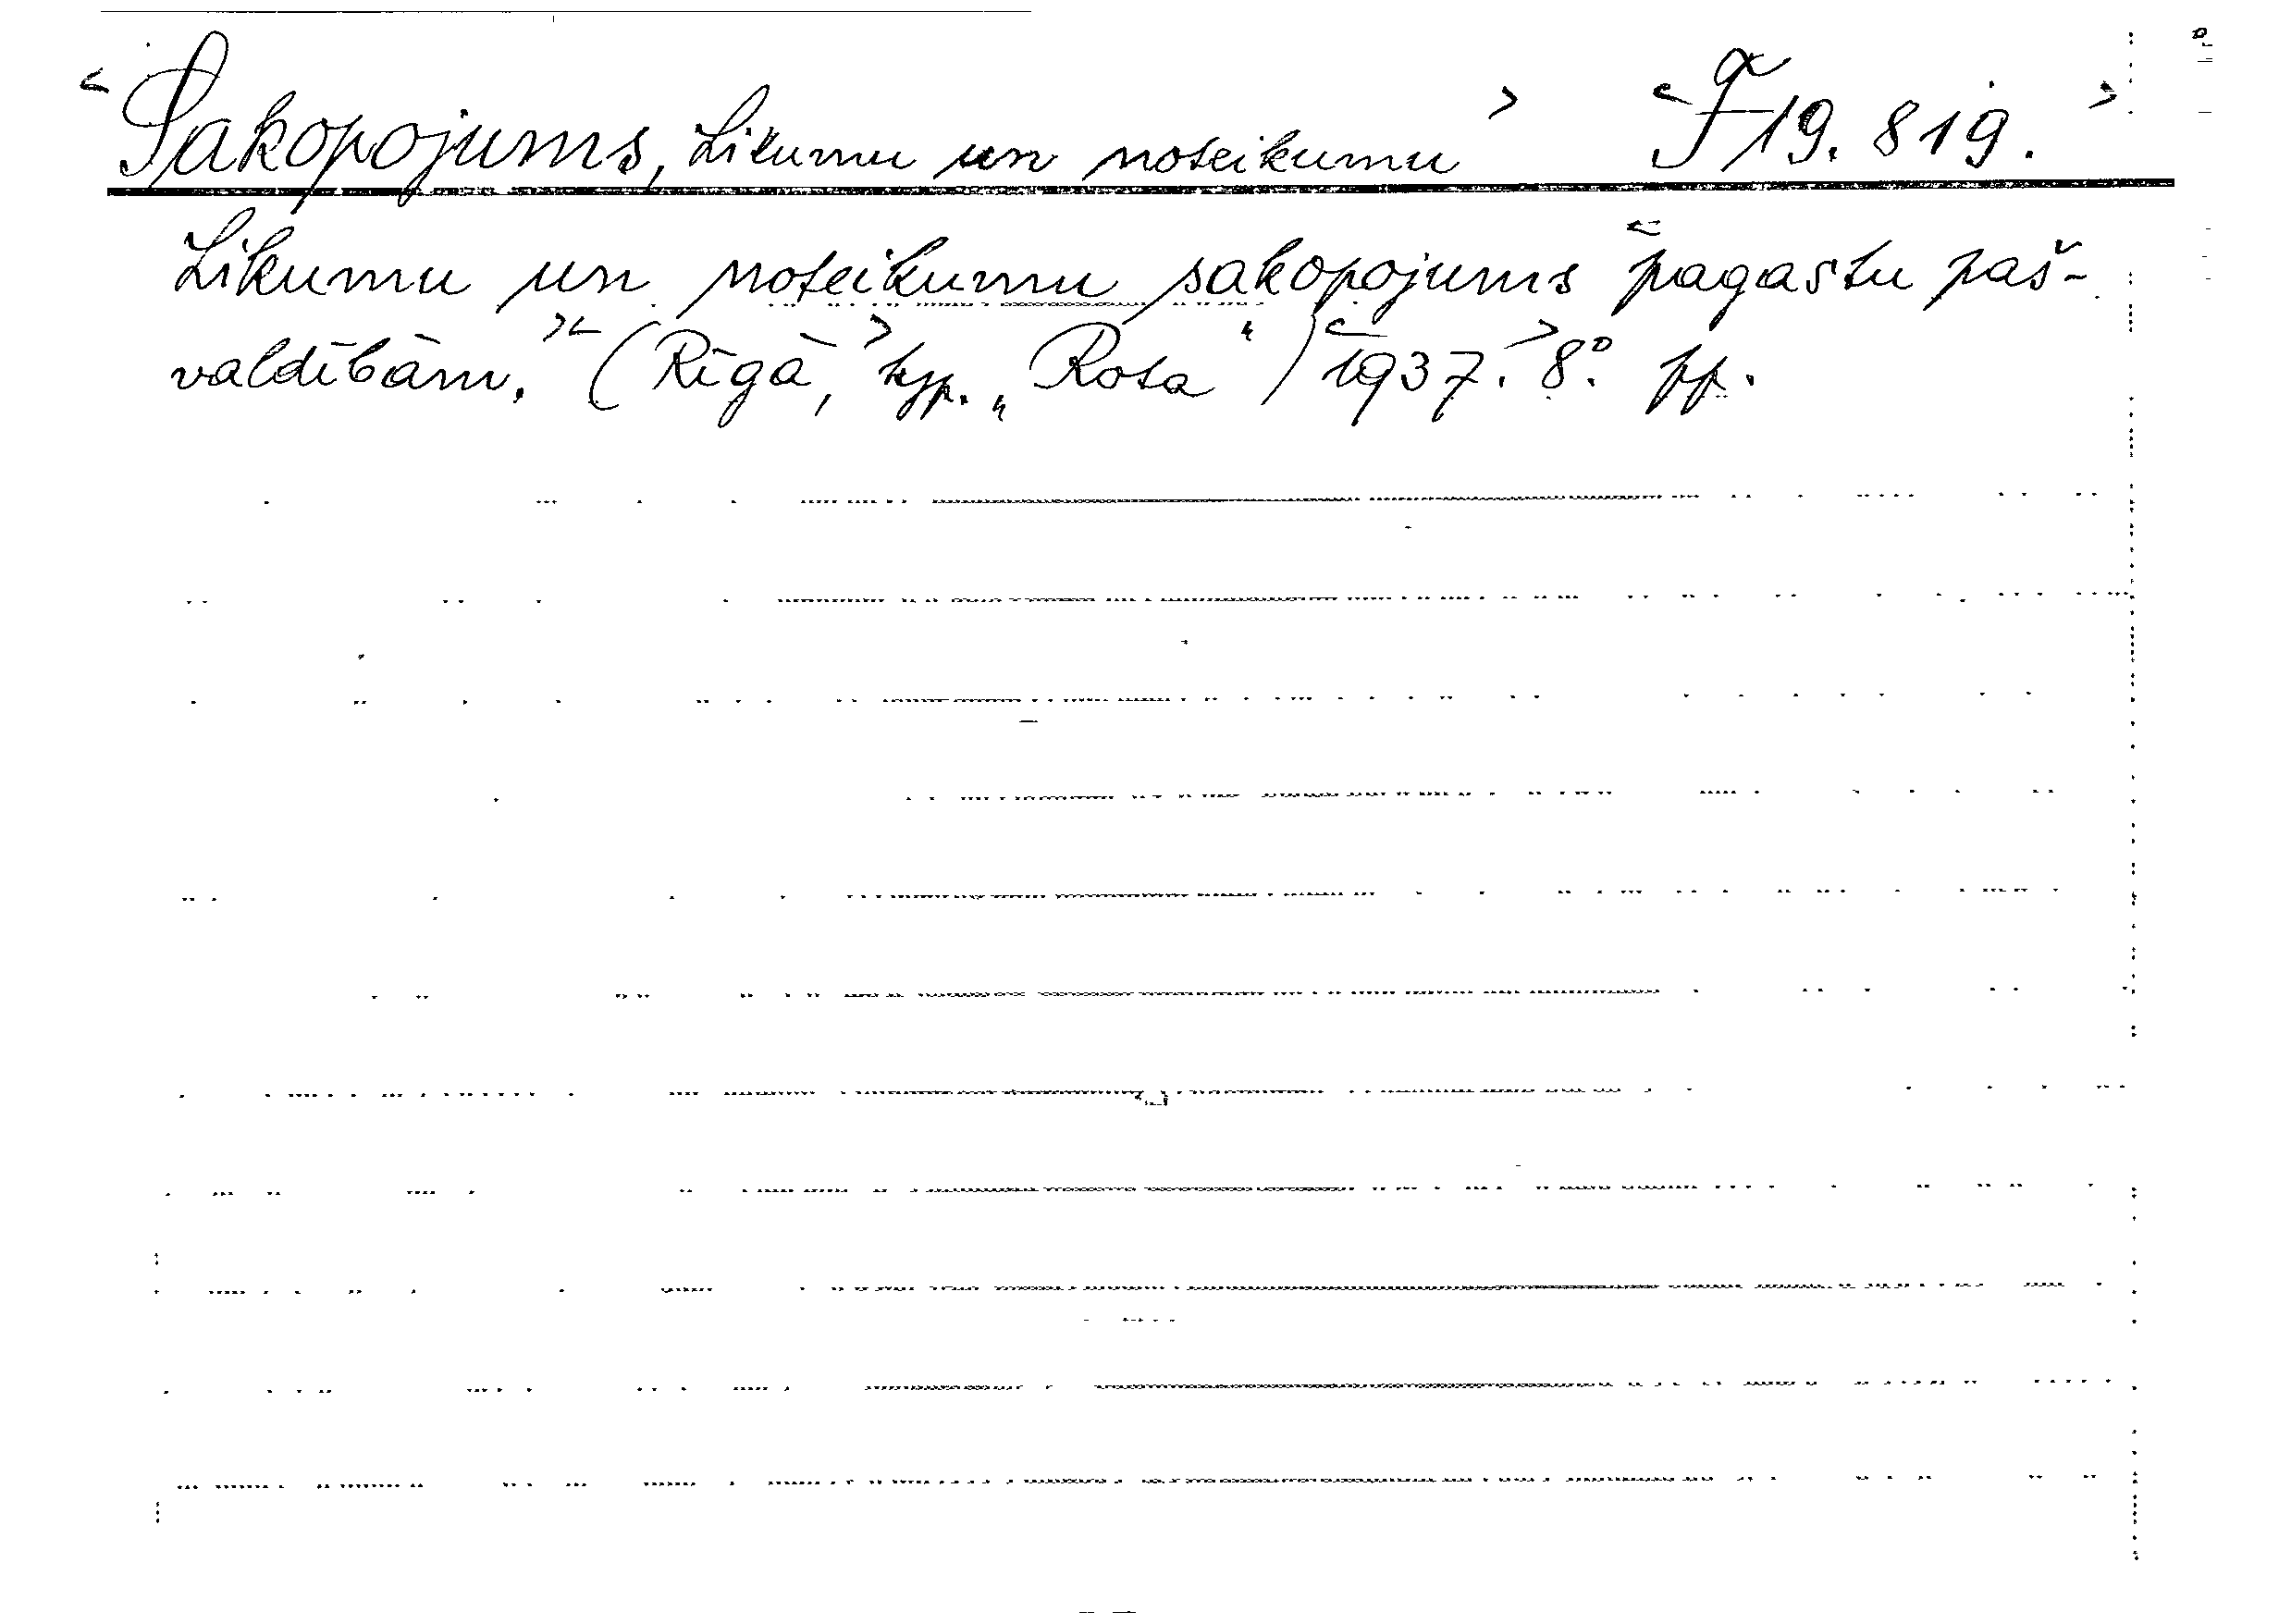 Sakopojums, Likumu un noteikumu F 19.819.
Likumu un noteikumu sakopojums pagastu paš-
valdībām. (Rīgā, typ. „Rota“) 1937. 8° pp.